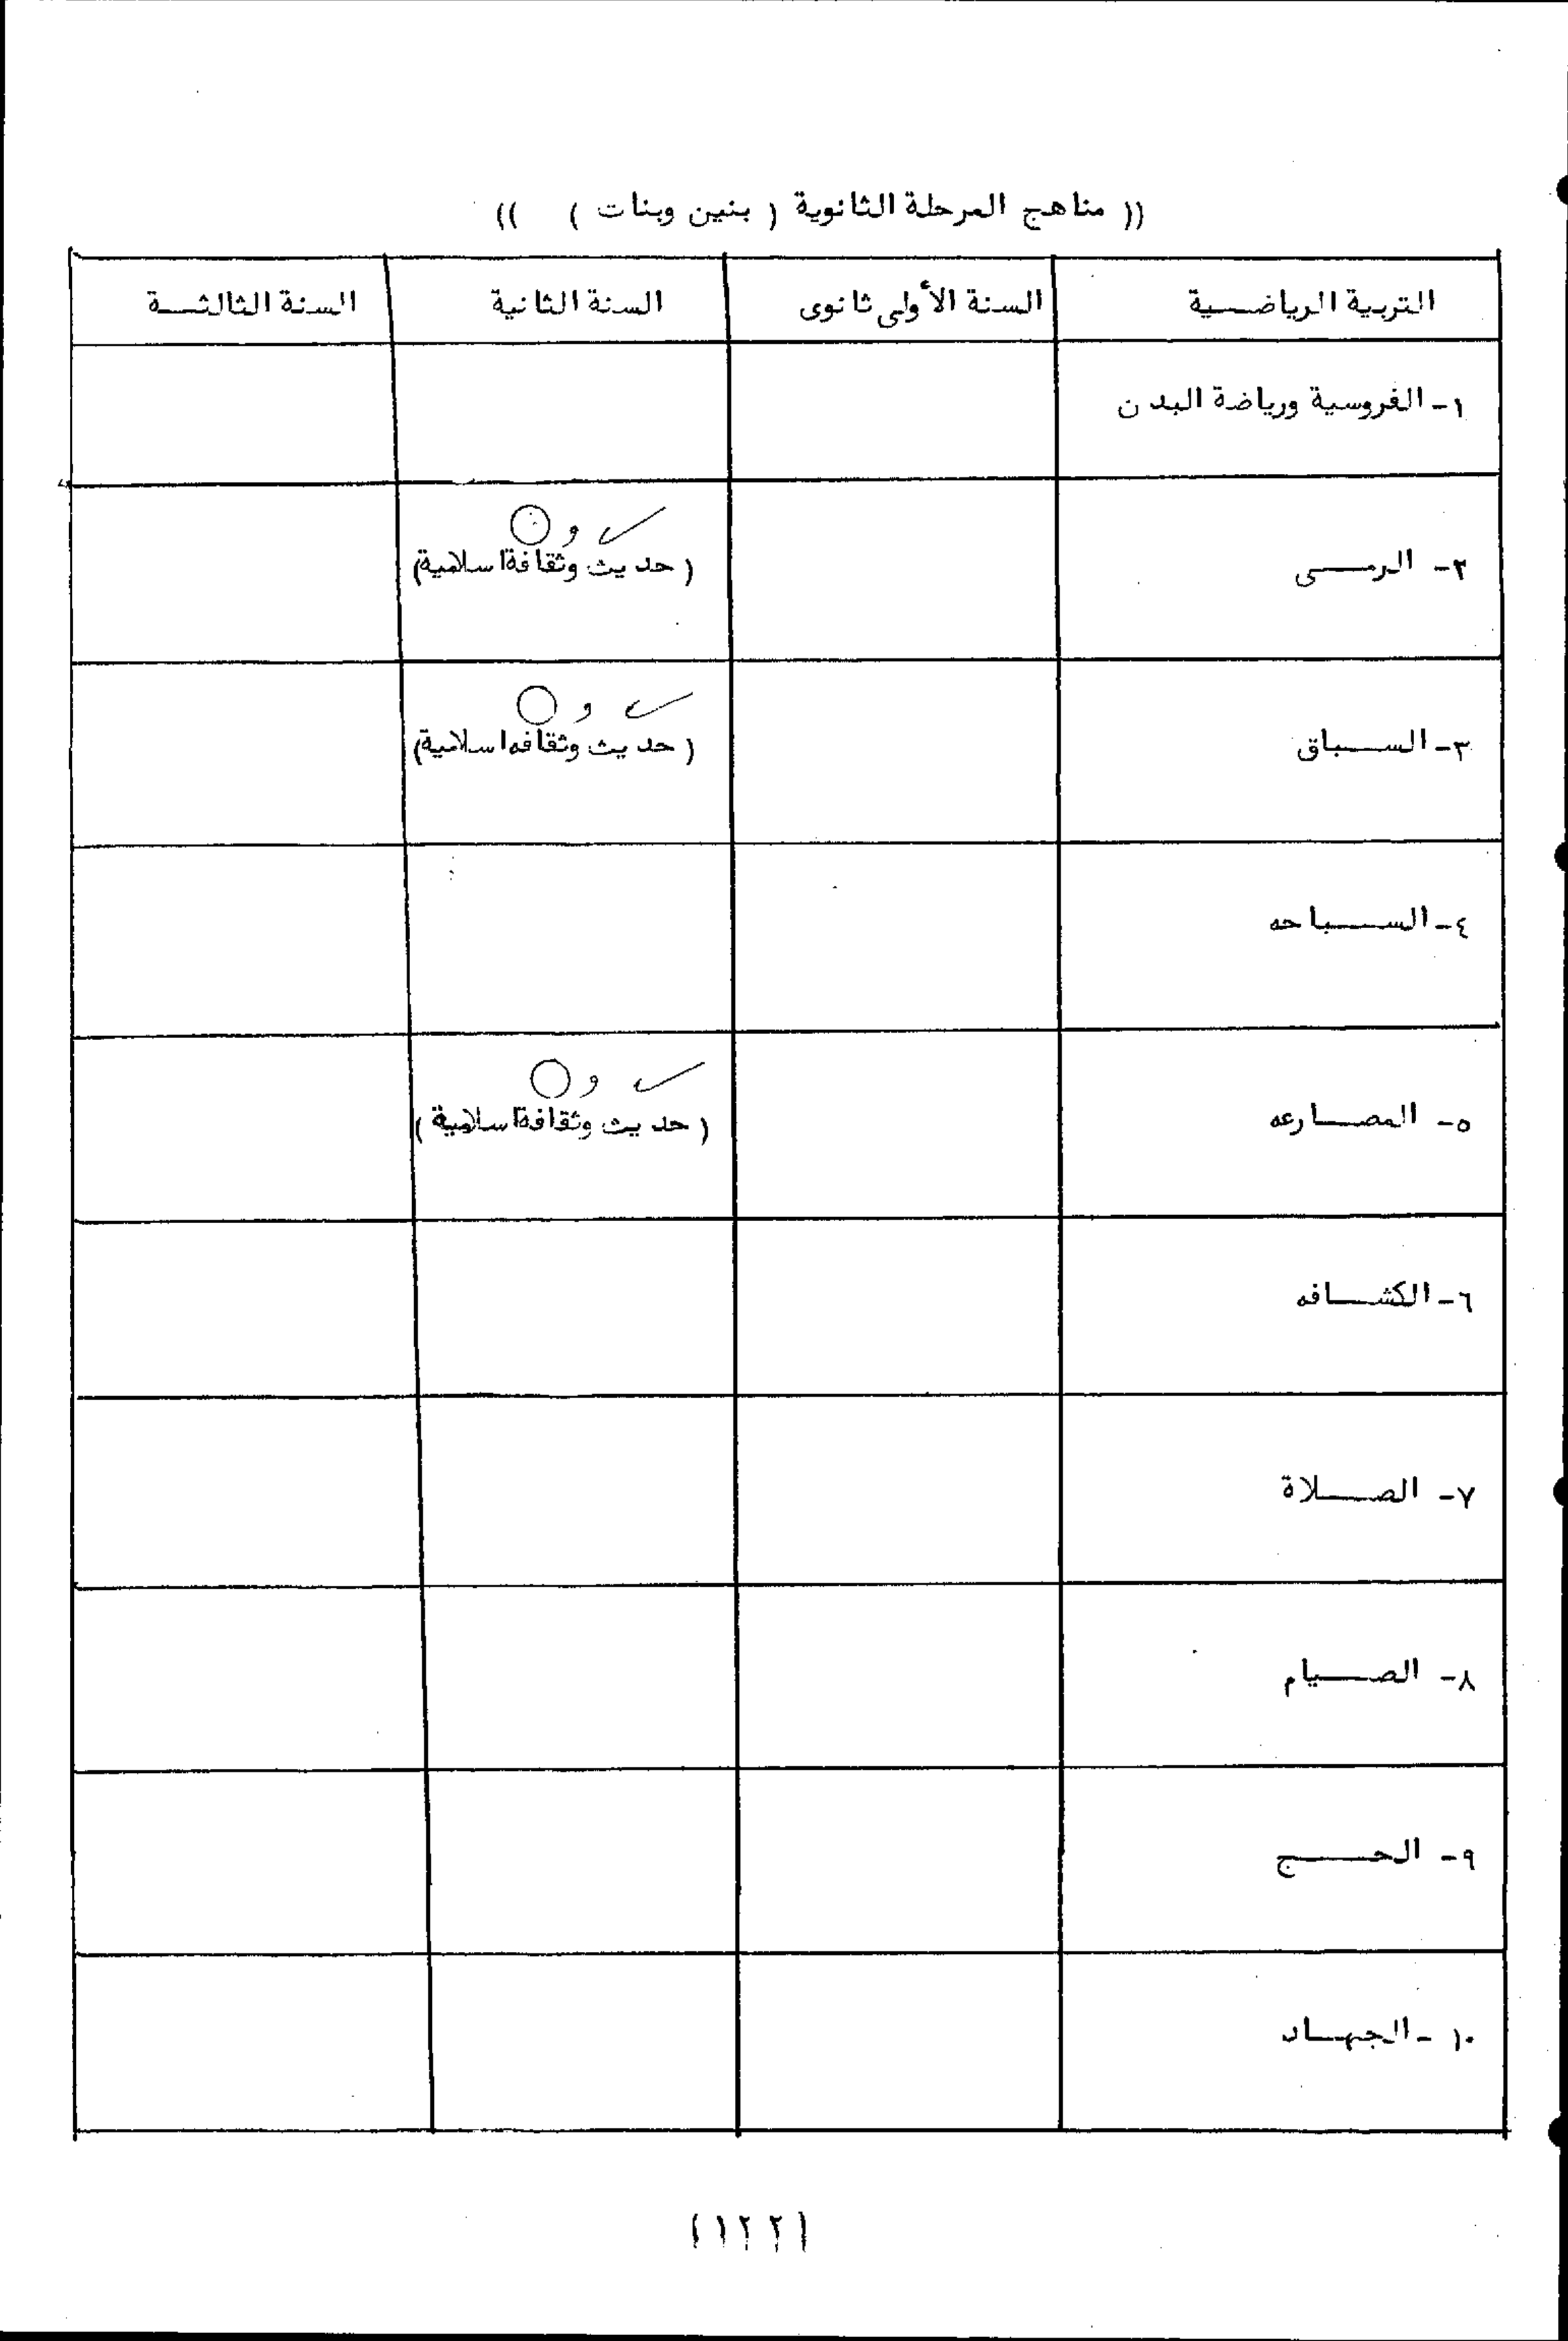 (( مناهج المرحلة الثانوية ( بنين وبنات ) ))
التربية الرياضية السنة الأولى ثانوى السنة الثانية السنة الثالثة
١- الفروسية ورياضة البدن
✓ و ○
٢- الرمى (حديث وثقافة اسلامية)
✓ و ○
٣- السباق (حديث وثقافه اسلامية)
٤- السباحه
✓ و ○
٥- المصارعه (حديث وثقافة اسلامية)
٦- الكشافه
٧- الصلاة
٨- الصيام
٩- الحج
١٠- الجهاد
(١٢٢)